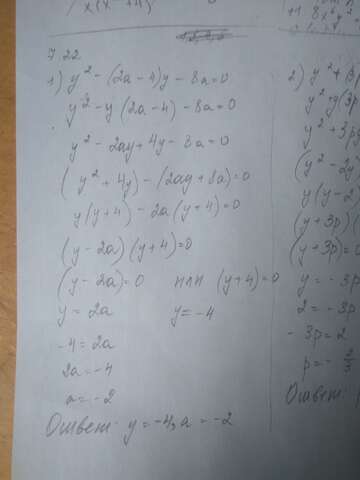 x(x²+4)
8x⁶y²
7.22
1) y² - (2a-4)y - 8a=0
y² - y(2a-4) - 8a=0
y² - 2ay+4y - 8a=0
(y²+4y) - (2ay+8a)=0
y(y+4) - 2a(y+4)=0
(y-2a)(y+4)=0
(y-2a)=0 или (y+4)=0
y = 2a y=-4
-4=2a
2a=-4
a=-2
Ответ: y=-4, a=-2
2) y²+(3p
y²+y(3p
y²+3py
(y²-2y
y(y-2
(y+3p)(
(y+3p)=0
y=-3p
2=-3p
-3p=2
p=-2/3
Ответ: